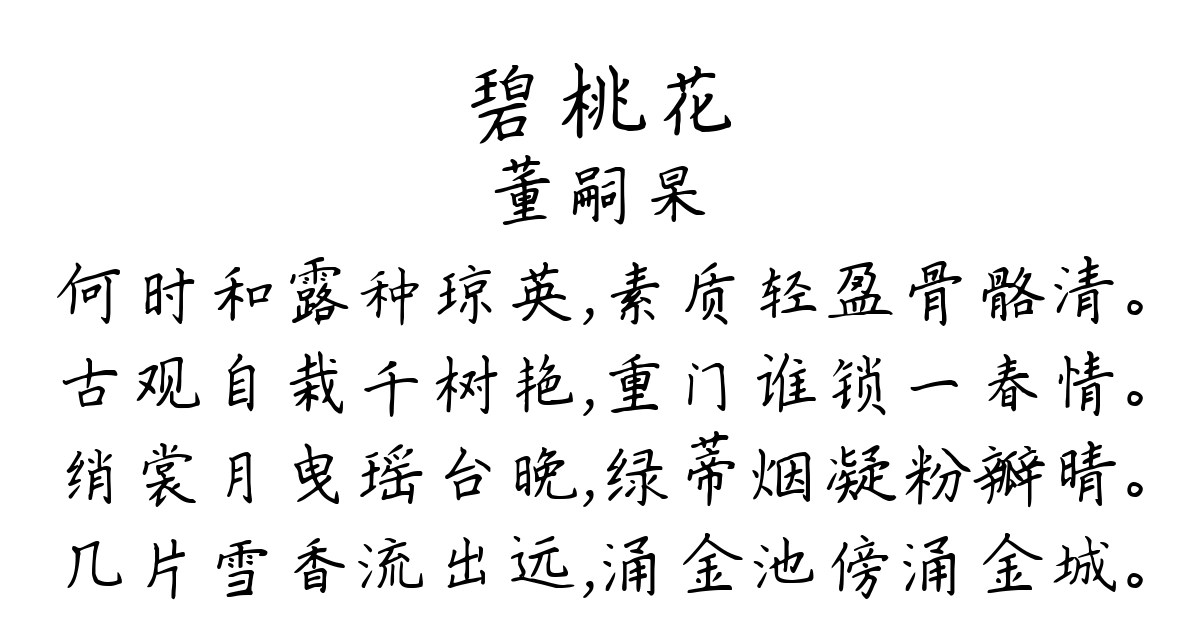 碧桃花
董嗣杲
何时和露种琼英,素质轻盈骨骼清。
古观自栽千树艳,重门谁锁一春情。
绡裳月曳瑶台晚,绿蒂烟凝粉瓣晴。
几片雪香流出远,涌金池傍涌金城。